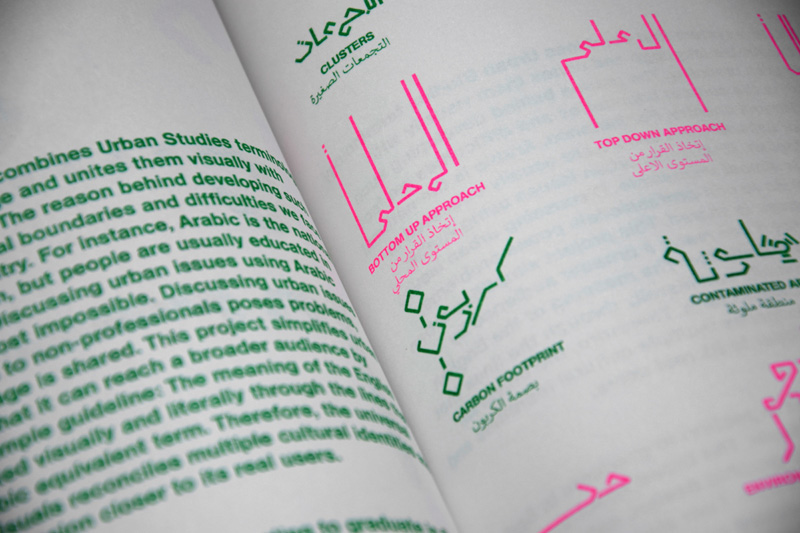 combines Urban Studies
ge and unites them visually with
The reason behind developing such
al boundaries and difficulties we
try. For instance, Arabic is the
n, but people are usually educated
discussing urban issues using Arabic
ost impossible. Discussing urban
to non-professionals poses problems
age is shared. This project simplifies
hat it can reach a broader audience by
mple guideline: The meaning of the
ed visually and literally through the lines
bic equivalent term. Therefore, the
suals reconciles multiple cultural
sion closer to its real users.
to graduate
CLUSTERS
التجمعات الصغيرة
المحلي
BOTTOM UP APPROACH
إتخاذ القرار من
المستوى المحلي
TOP DOWN APPROACH
إتخاذ القرار من
المستوى الاعلى
كربون
CARBON FOOTPRINT
بصمة الكربون
CONTAMINATED
منطقة ملوثة